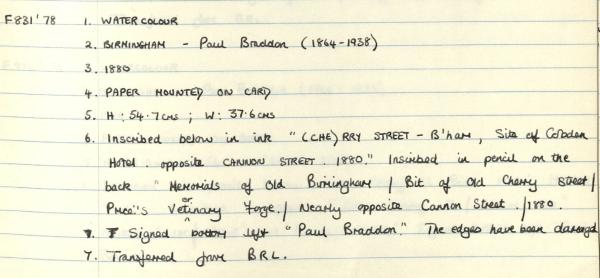 F831'78 1. WATER COLOUR
2. BIRMINGHAM - Paul Braddon (1864-1938)
3. 1880
4. PAPER MOUNTED ON CARD
5. H: 54.7cms ; W: 37.6cms
6. Inscribed below in ink "(CHE)RRY STREET - B'ham, Site of Cobden
Hotel. opposite CANNON STREET. 1880." Inscribed in pencil on the
back "Memorials of Old Birmingham / Bit of Old Cherry Street /
Vetinary or Forge. / Nearly opposite Cannon Street. / 1880.
Signed bottom left "Paul Braddon." The edges have been damaged
7. Transferred from B.R.L.